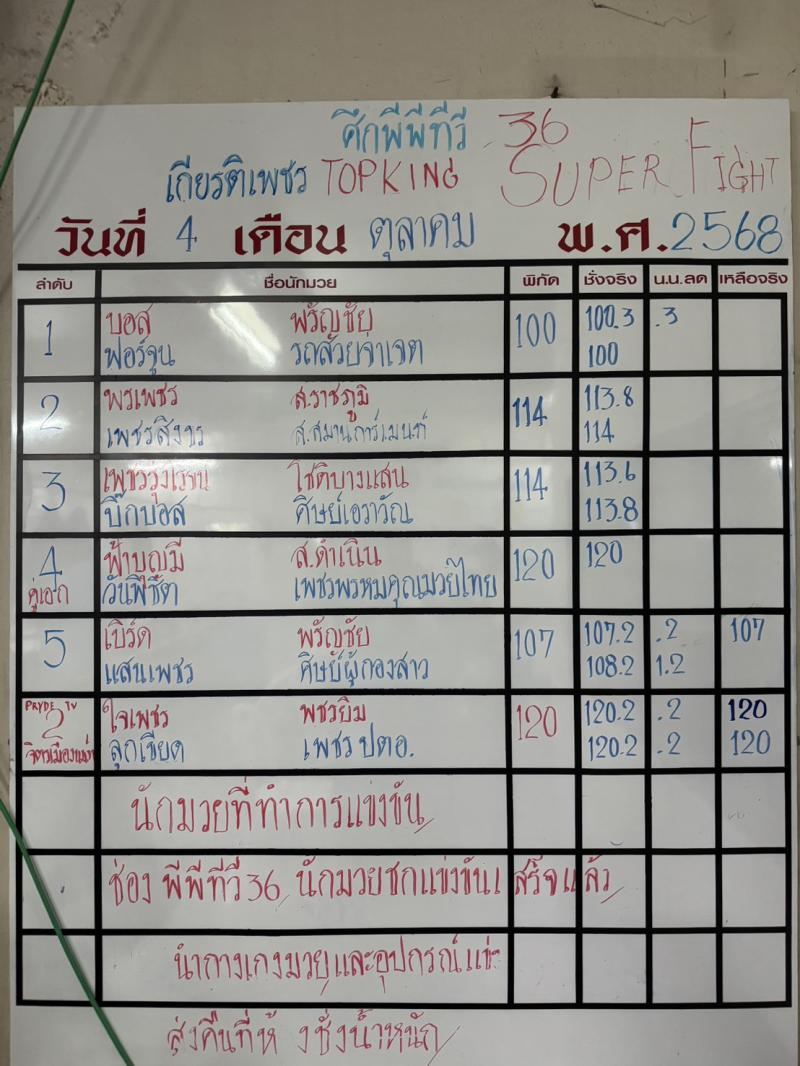 ศึกพีพีทีวี 36
เกียรติเพชร TOPKING SUPER FIGHT
วันที่ 4 เดือน ตุลาคม พ.ศ.2568
ลำดับ ชื่อนักมวย พิกัด ชั่งจริง น.น.ลด เหลือจริง
1 บอส พรัญชัย 100 100.3 .3
ฟอร์จูน รถสวยจ่าเจต 100
2 พรเพชร ส.ราชภูมิ 114 113.8
เพชรสิงขร ส.สมานการ์เมนท์ 114
3 เพชรรุ่งเรือง โชติบางแสน 114 113.6
บิ๊กบอส ศิษย์เอราวัณ 113.8
4 ฟ้าบุญมี ส.ดำเนิน 120 120
คู่เอก วันพิชิต เพชรพรหมคุณมวยไทย
5 เบิร์ด พรัญชัย 107 107.2 .2 107
แสนเพชร ศิษย์ผู้กองสาว 108.2 1.2
PRYDE TV 2 ใจเพชร พชรยิม 120 120.2 .2 120
จิตรเมือง ลูกเขียด เพชร ปตอ. 120.2 .2 120
นักมวยที่ทำการแข่งขัน
ช่อง พีพีทีวี 36 นักมวยชกแข่งขันเสร็จแล้ว
นำกางเกงมวยและอุปกรณ์
ส่งคืนที่ห้ งชั่งน้ำหนัก